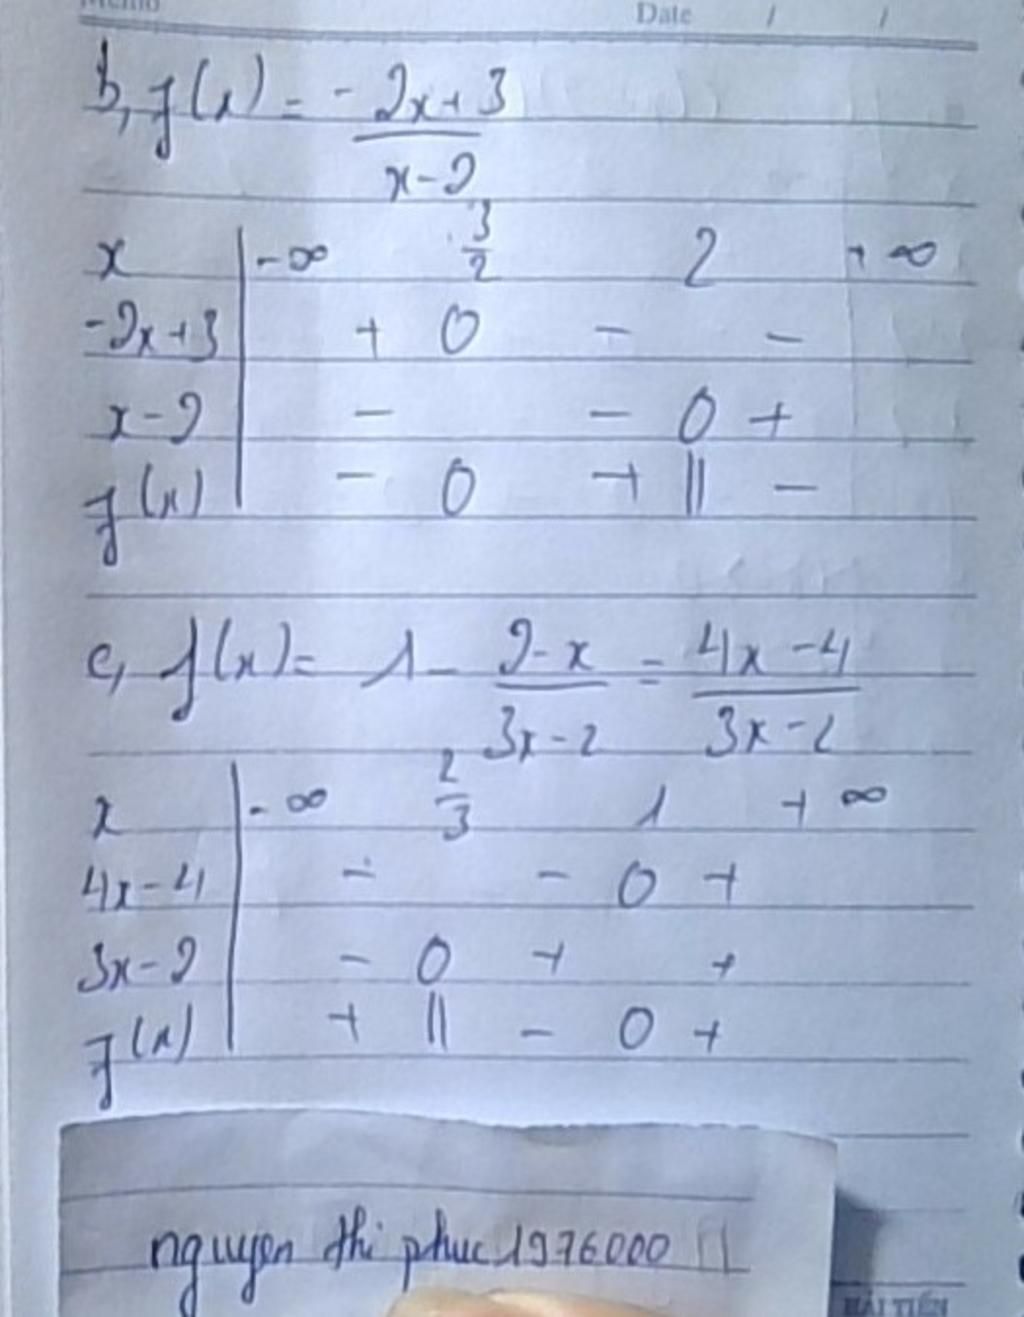 Memo Date / /
b, f(x) = -2x+3
x-2
x -∞ 3/2 2 +∞
-2x+3 + 0 - -
x-2 - - 0 +
f(x) - 0 + || -
c, f(x) = 1 - 2-x/3x-2 = 4x-4/3x-2
x -∞ 2/3 1 +∞
4x-4 - - 0 +
3x-2 - 0 + +
f(x) + || - 0 +
nguyen thi phuc 1976000
HẢI TIẾN